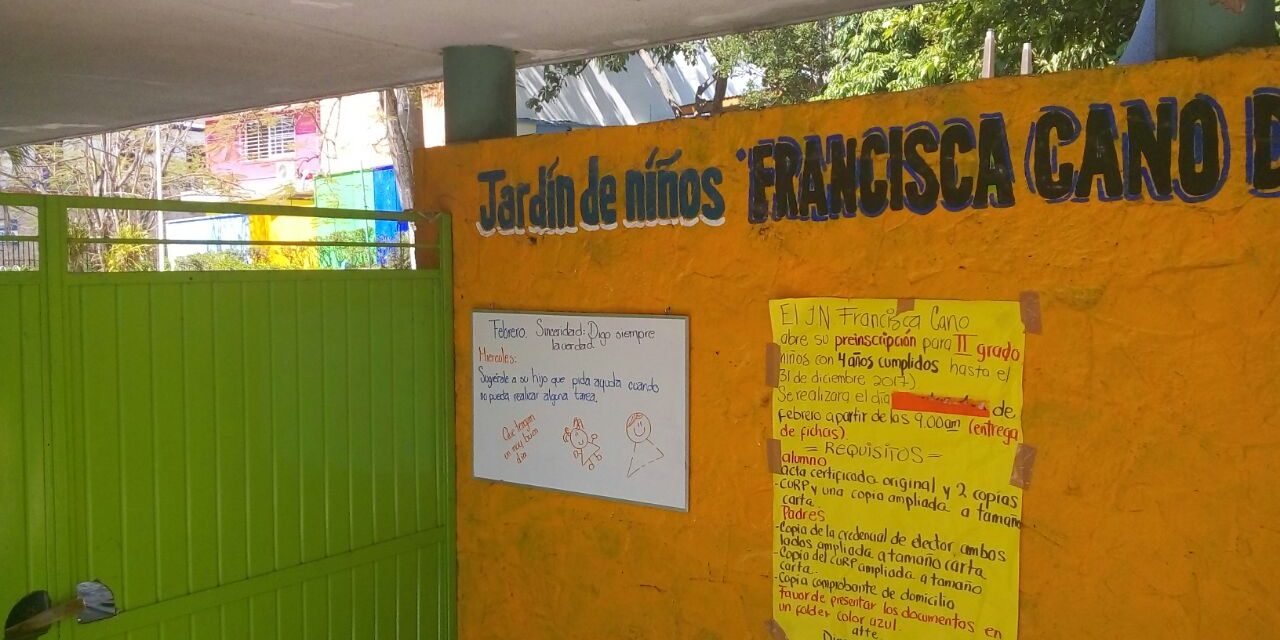 Jardín de niños FRANCISCA CANO D
Febrero. Sinceridad: Digo siempre
la verdad
Miercoles:
Sugierale a su hijo que pida ayuda cuando
no pueda realizar alguna tarea.
Que tengan
un muy buen
día
El J.N Francisca Cano
abre su preinscripción para II grado
niños con 4 años cumplidos hasta el
31 de diciembre 2017)
Se realizara el día de
febrero a partir de las 9.00am (entrega
de fichas)
= REQUISITOS =
alumno
acta certificada original y 2 copias
-CURP y una copia ampliada a tamaño
carta.
Padres
-Copia de la credencial de elector, ambos
lados ampliada a tamaño carta
-Copia del CURP ampliada a tamaño
carta.
-Copia comprobante de domicilio
Favor de presentar los documentos en
un folder color azul.
atte.